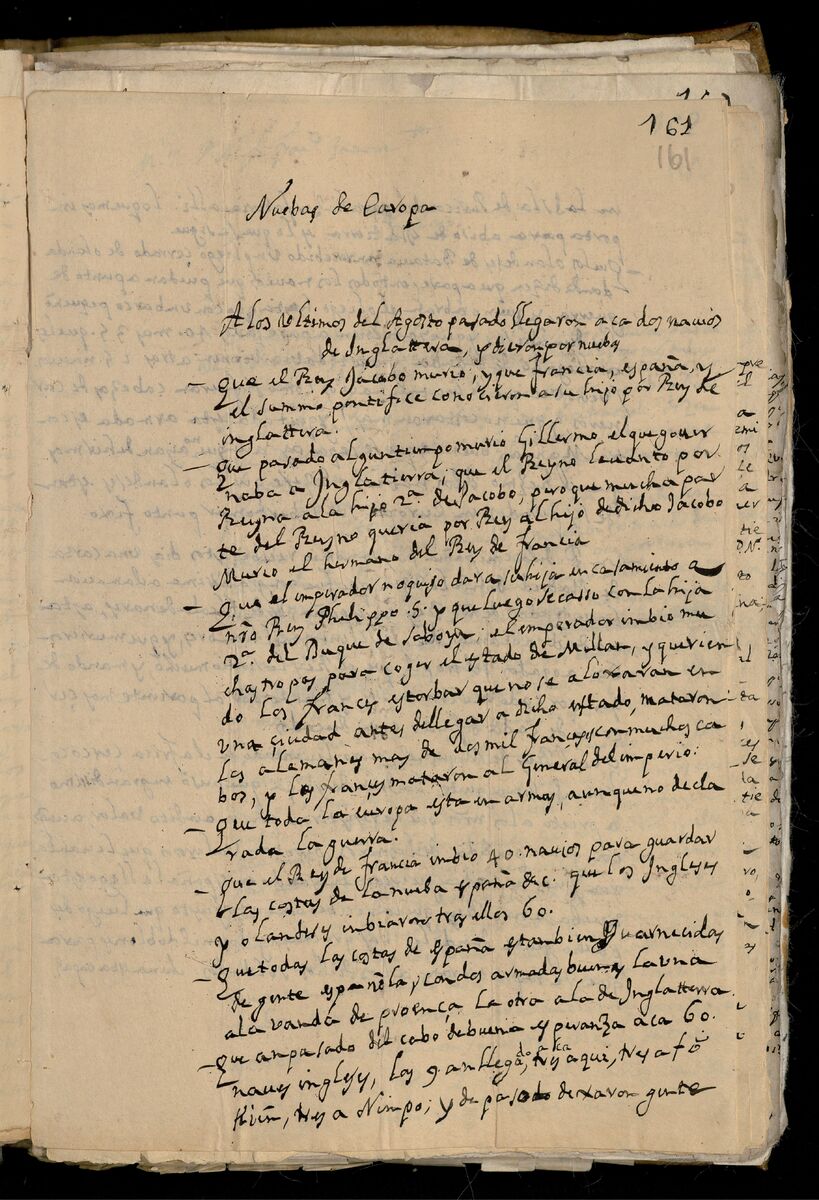 161
161
Nuebas de Europa
A los ultimos del Agosto pasado llegaron aca dos navios
de Inglattera, y dieron por nuebas
– Que el Rey Jacobo murio, y que francia, españa, y
el summo pontifice conocieron a su hijo por Rey de
inglattera.
– Que pasado algun tiempo murio Gillermo, el que gover
naba a Inglatierra, que el Reyno levanto por
Reyna a la hija 2ª de Jacobo, pero que mucha par
te del Reyno queria por Rey al hijo de dicho Jacobo
Murio el hermano del Rey de francia
– Que el imperador no quiso dar a su hija en casamiento a
nrõ Rey Philippo .5. y que luego se casso con la hija
2ª. del Duque de Saboya; el emperador imbio mu
chas tropas para coger el estado de Millan, y querien
do los frances estorbar que no se aloxaran en
una ciudad antes de llegar a dicho estado, mataron
los alemanes mas de dos mil franceses con muchos ca
bos, y los frances mataron al General del imperio.
– Que toda la europa esta en armas, aunque no decla
rada la guerra.
– Que el Rey de francia imbio 40. navios para guardar
las costas de la nueba españa &c. que los Ingleses
y olandeses imbiaron tras ellos 60.
– Que todas las costas de españa estan bien guarnecidas
de gente española, y con dos armadas buenas la una
a la vanda de proença la otra a la de Inglatterra.
– Que an pasado del cabo de buena esperanza aca 60.
naves inglesas, las 9 an llegado aca, tres aqui, tres a fõ
Kien, tres a Nimpo; y de pasado dexaron gente